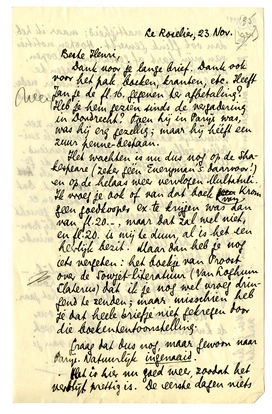 Le Roselier, 23 Nov.
Beste Henri,
Dank voor je lange brief. Dank ook
voor het pak boeken, kranten, etc. Heeft
Jan je de fl. 16. gegeven ter afbetaling?
Heb je hem gezien sinds de vergadering
in Dordrecht? Toen hij in Parijs was,
was hij erg gezellig; maar hij heeft een
zuur penne-bestaan.
Het wachten is nu dus nog op de Sha-
kespeare (zeker geen Everyman's daarvoor?)
en op de helaas weer vervlogen illustraties.
Ik vroeg je ook of van dat boek Krom
geen goedkoper ex. te krijgen was dan
van fl. 20.-, maar dat zal wel niet,
en fl. 20. is mij te duur, al is het een
heerlijk bezit. Maar dan heb je nog
iets vergeten: het boekje van Proost
over de Sowjet-literatuur (Van Loghum
Slaterus) dat ik je nog wel vroeg drin-
gend te zenden; maar misschien heb
je dat heele briefje niet gekregen door
die boekententoonstelling.
Graag dat dus nog, maar gewoon naar
Parijs. Natuurlijk ingenaaid.
Het is hier nu goed weer, zoodat het
verblijf prettig is. De eerste dagen niets